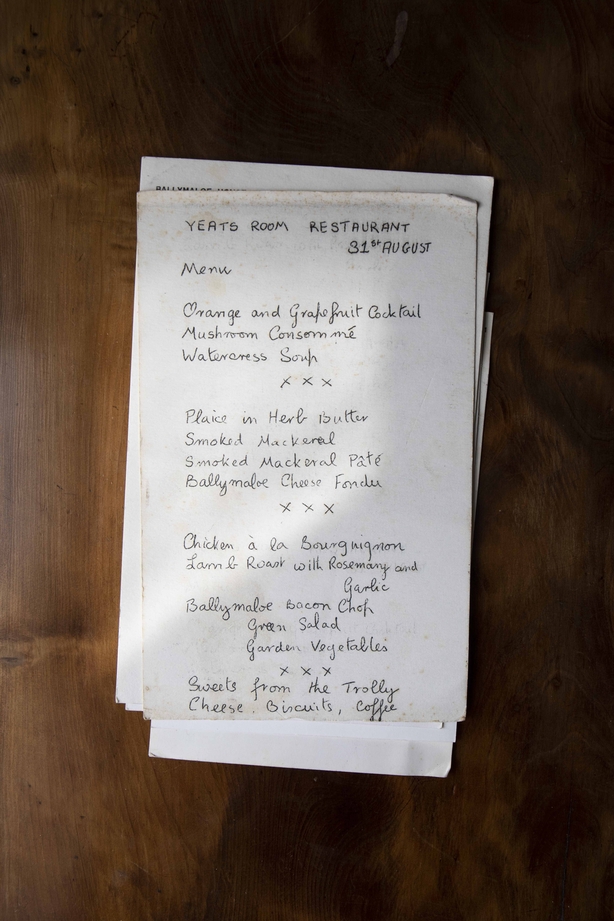 BALLYMALOE
YEATS ROOM RESTAURANT
31st AUGUST
Menu
Orange and Grapefruit Cocktail
Mushroom Consommé
Watercress Soup
x x x
Plaice in Herb Butter
Smoked Mackeral
Smoked Mackeral Pâté
Ballymaloe Cheese Fondu
x x x
Chicken à la Bourguignon
Lamb Roast with Rosemary and
Garlic
Ballymaloe Bacon Chop
Green Salad
Garden Vegetables
x x x
Sweets from the Trolly
Cheese. Biscuits, Coffee